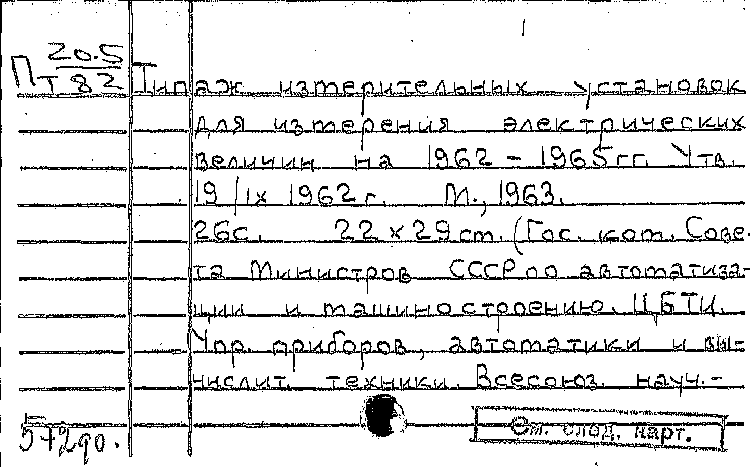 20.5
Пт 82
Типаж измерительных установок
для измерения электрических
величин на 1962 - 1965 гг. Утв.
19/IX 1962 г. М., 1963.
26 с. 22 x 29 см. (Гос. ком. Сове-
та Министров СССР по автоматиза-
ции и машиностроению. ЦБТИ.
Упр. приборов, автоматики и вы-
числит. техники. Всесоюз. науч.-
См. след. карт.